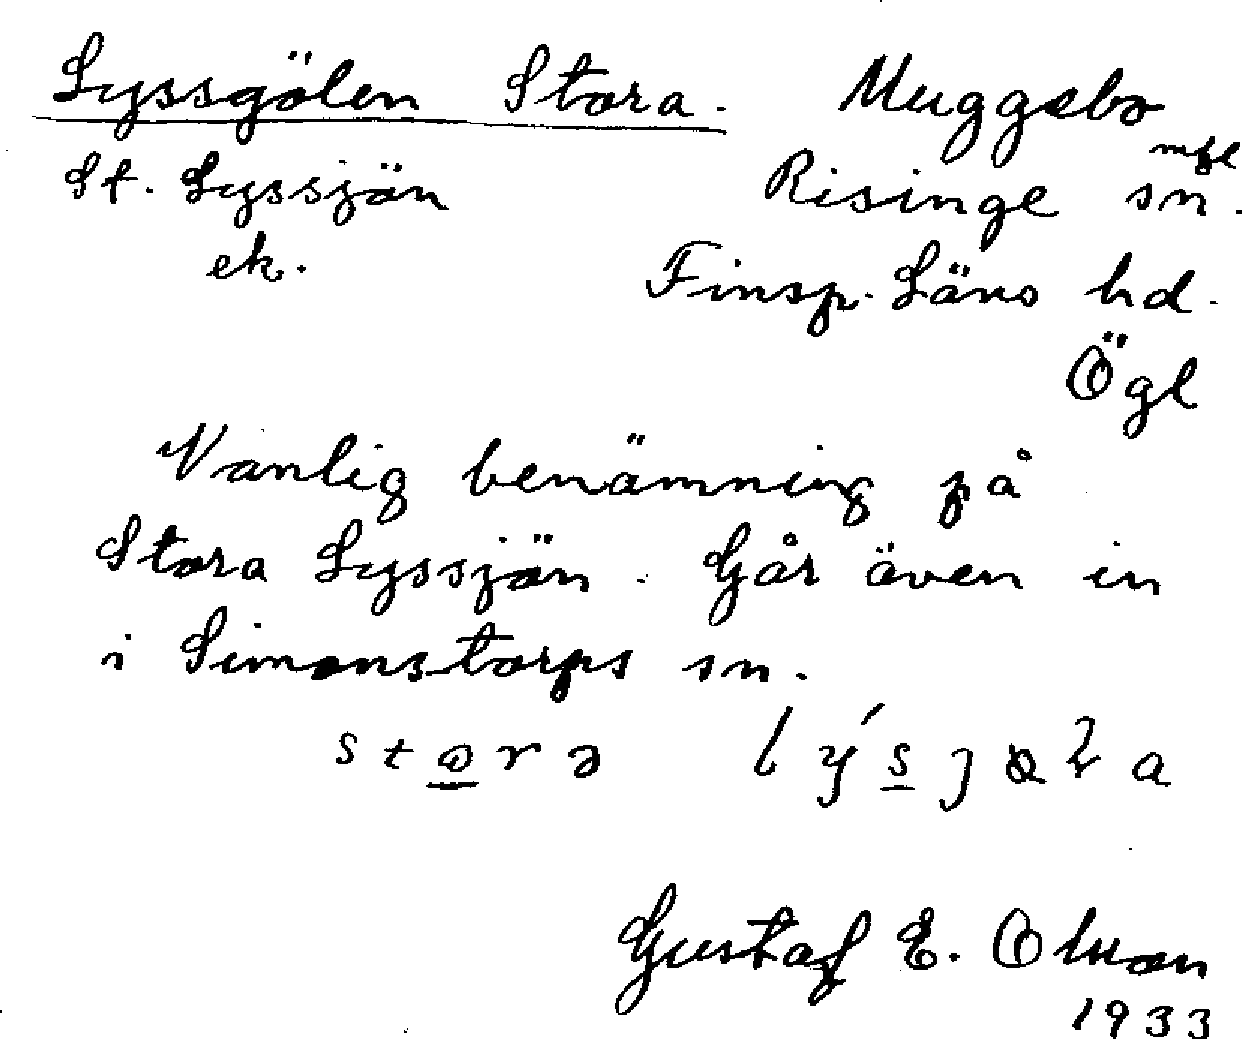 Lyssgölen Stora. Muggebo mfl
St. Lyssjön Risinge sn.
ek. Finsp. Läns hd.
Ögl
Vanlig benämning på
Stora Lyssjön. Går även in
i Simonstorps sn.
Gustaf E. Olson
1933